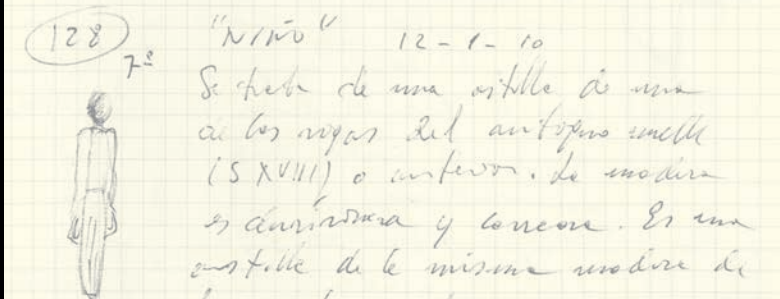 128 "NIÑO" 12-1-10
7º
Se trata de una astilla de una
de las vigas del antiguo muelle
(S XVIII) o anterior. La madera
es y correosa. Es una
astilla de la misma madera de